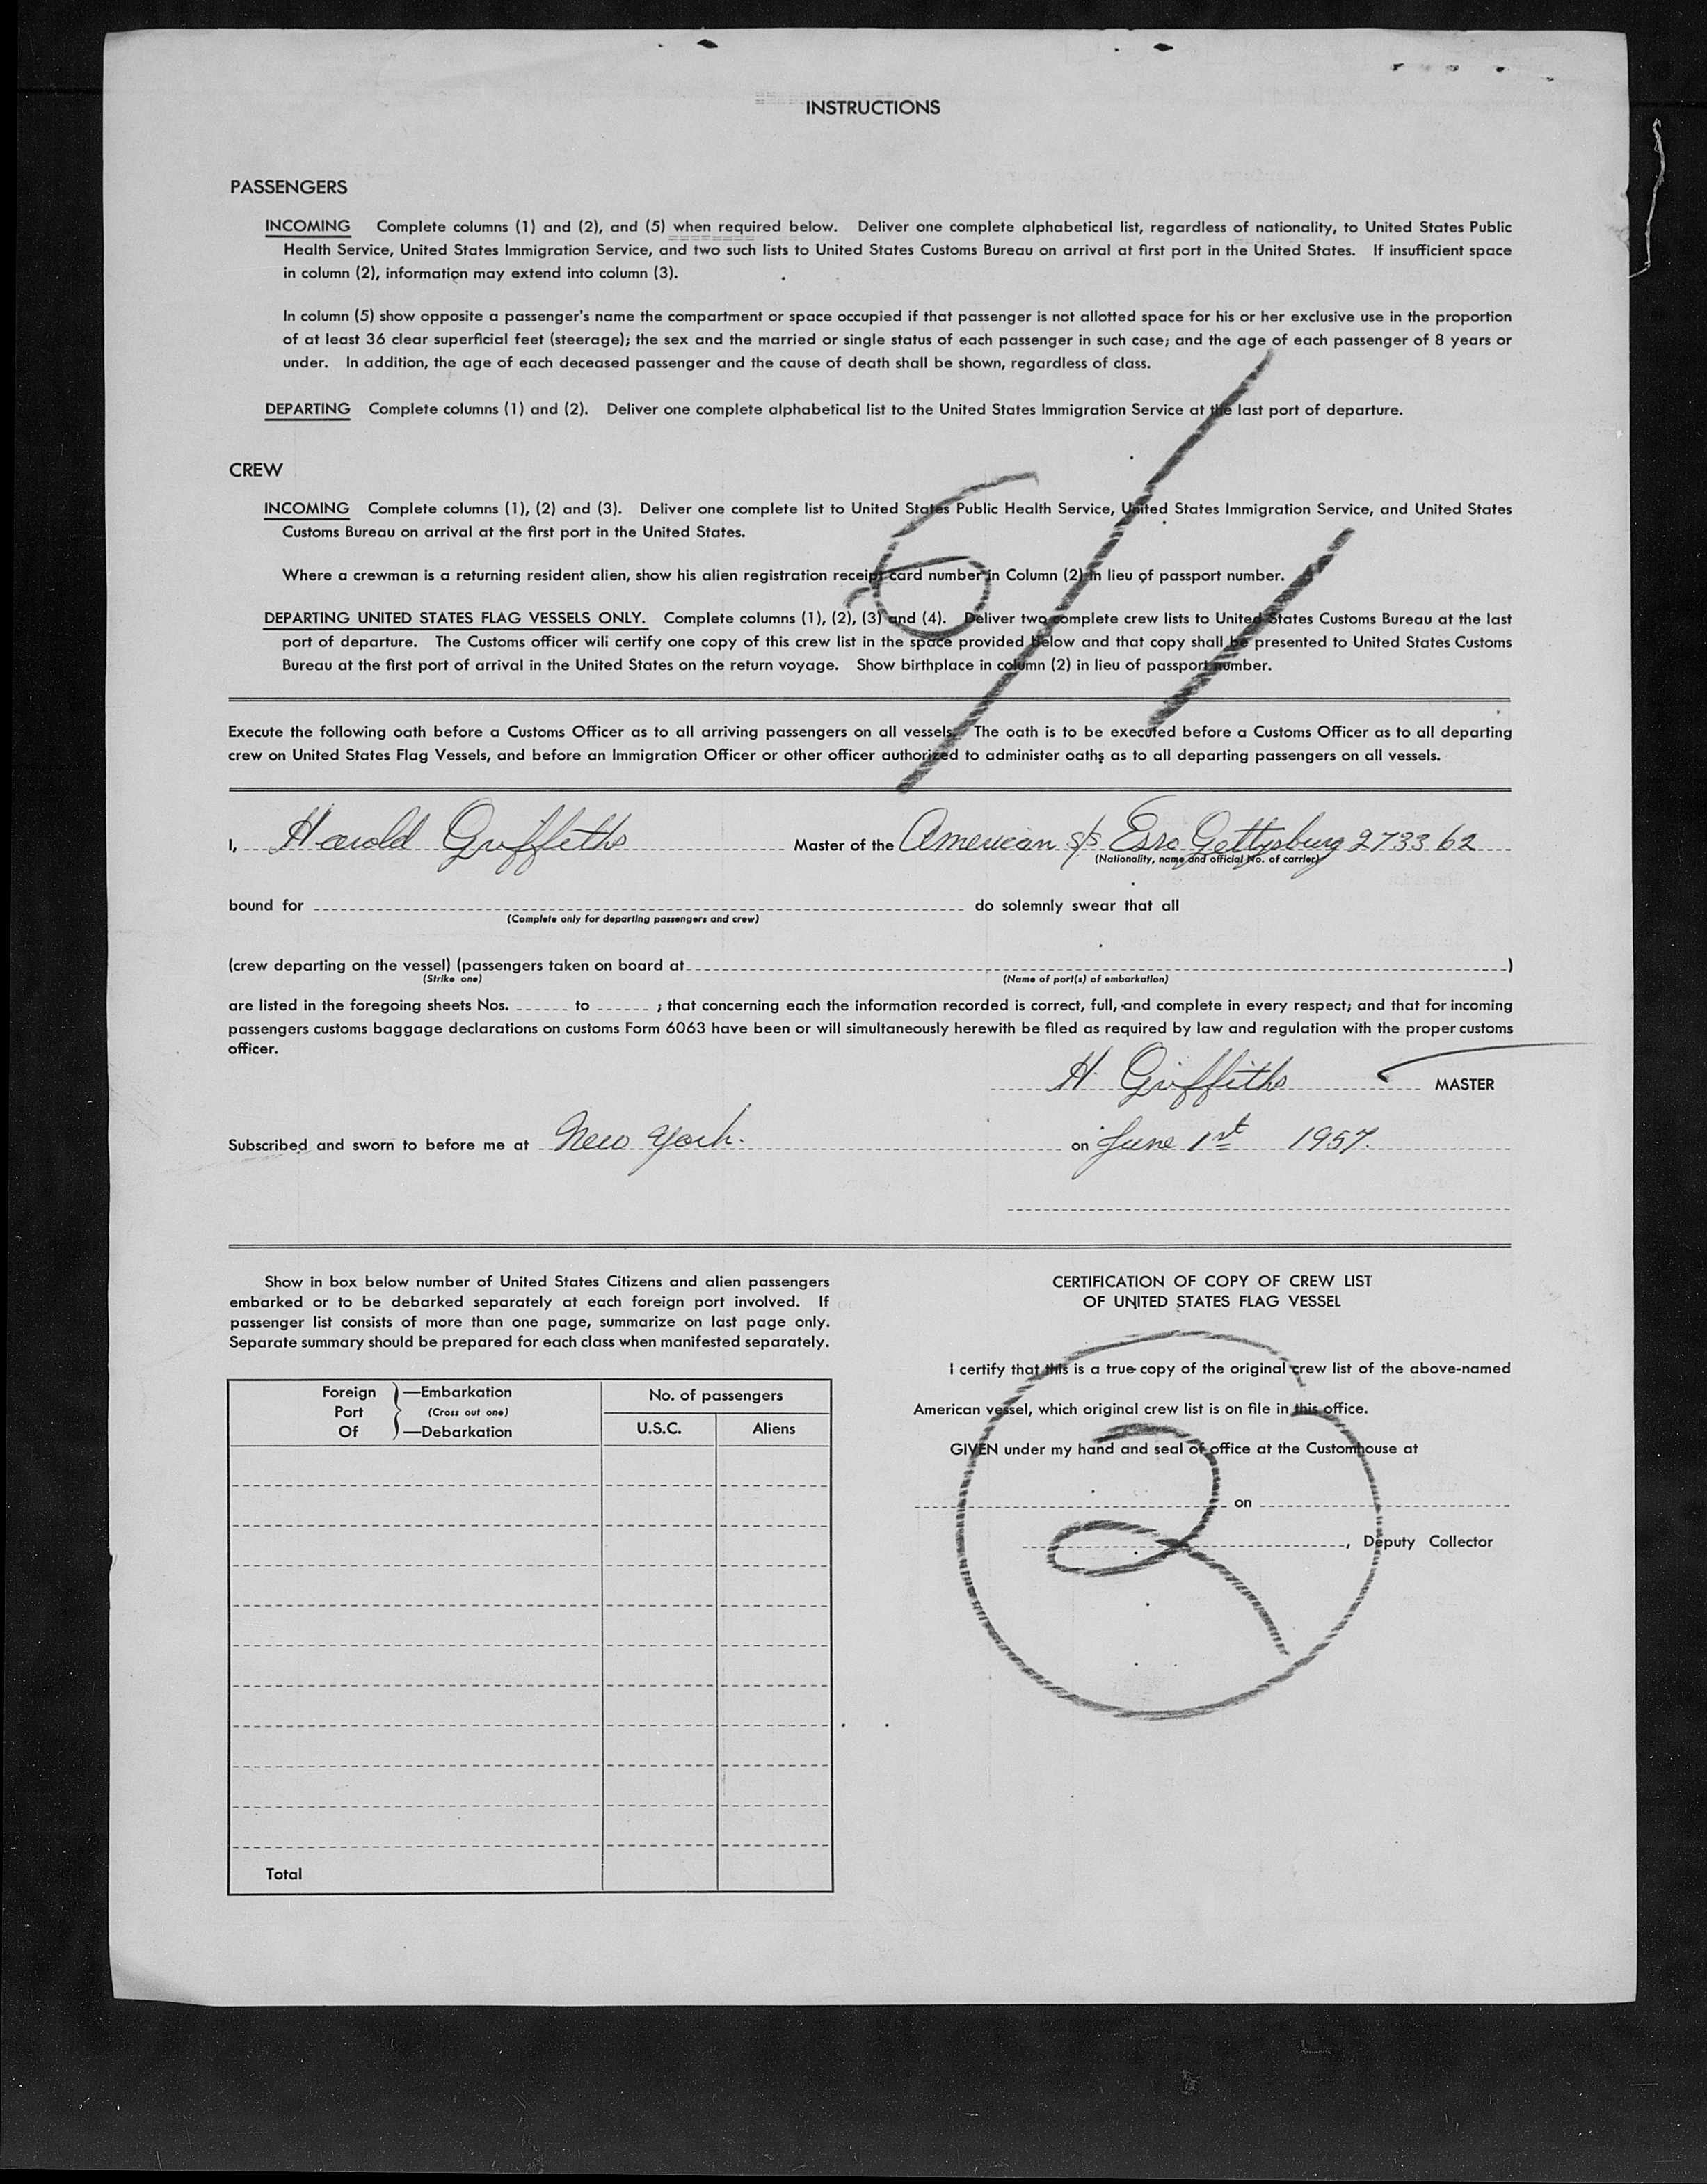 INSTRUCTIONS
PASSENGERS
INCOMING Complete columns (1) and (2), and (5) when required below. Deliver one complete alphabetical list, regardless of nationality, to United States Public
Health Service, United States Immigration Service, and two such lists to United States Customs Bureau on arrival at first port in the United States. If insufficient space
in column (2), information may extend into column (3).
In column (5) show opposite a passenger's name the compartment or space occupied if that passenger is not allotted space for his or her exclusive use in the proportion
of at least 36 clear superficial feet (steerage); the sex and the married or single status of each passenger in such case; and the age of each passenger of 8 years or
under. In addition, the age of each deceased passenger and the cause of death shall be shown, regardless of class.
DEPARTING Complete columns (1) and (2). Deliver one complete alphabetical list to the United States Immigration Service at the last port of departure.
CREW
INCOMING Complete columns (1), (2) and (3). Deliver one complete list to United States Public Health Service, United States Immigration Service, and United States
Customs Bureau on arrival at the first port in the United States.
Where a crewman is a returning resident alien, show his alien registration receipt card number in Column (2) in lieu of passport number.
DEPARTING UNITED STATES FLAG VESSELS ONLY. Complete columns (1), (2), (3) and (4). Deliver two complete crew lists to United States Customs Bureau at the last
port of departure. The Customs officer will certify one copy of this crew list in the space provided below and that copy shall be presented to United States Customs
Bureau at the first port of arrival in the United States on the return voyage. Show birthplace in column (2) in lieu of passport number.
6/1
Execute the following oath before a Customs Officer as to all arriving passengers on all vessels. The oath is to be executed before a Customs Officer as to all departing
crew on United States Flag Vessels, and before an Immigration Officer or other officer authorized to administer oaths as to all departing passengers on all vessels.
I, Harold Griffiths Master of the American s/s Esso Gettysburg 273362
(Nationality, name and official No. of carrier)
bound for do solemnly swear that all
(Complete only for departing passengers and crew)
(crew departing on the vessel) (passengers taken on board at )
(Strike one) (Name of port(s) of embarkation)
are listed in the foregoing sheets Nos. to ; that concerning each the information recorded is correct, full, and complete in every respect; and that for incoming
passengers customs baggage declarations on customs Form 6063 have been or will simultaneously herewith be filed as required by law and regulation with the proper customs
officer.
H. Griffiths MASTER
Subscribed and sworn to before me at New York. on June 1st 1957.
Show in box below number of United States Citizens and alien passengers
embarked or to be debarked separately at each foreign port involved. If
passenger list consists of more than one page, summarize on last page only.
Separate summary should be prepared for each class when manifested separately.
Foreign Port Of
—Embarkation
(Cross out one)
—Debarkation
No. of passengers
U.S.C. Aliens
Total
CERTIFICATION OF COPY OF CREW LIST
OF UNITED STATES FLAG VESSEL
I certify that this is a true copy of the original crew list of the above-named
American vessel, which original crew list is on file in this office.
GIVEN under my hand and seal of office at the Customhouse at
on
, Deputy Collector
2